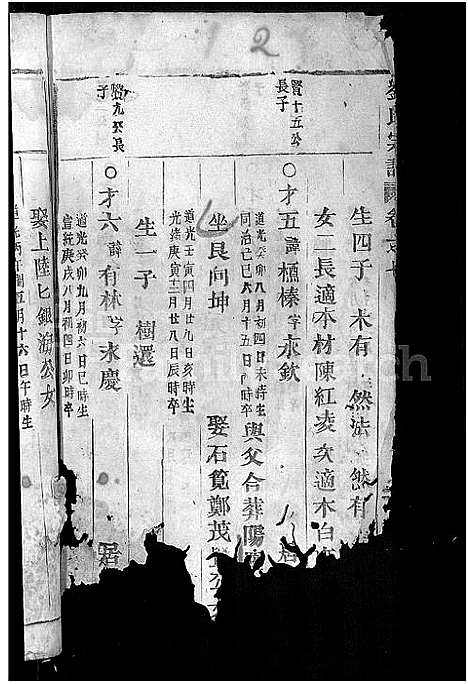 12
劉氏宗譜 卷
生四子 未有 然法 然有
女二長適本材陳紅凌 次適木白
賢十五公長子
○才五諱植榛字永欽 居
道光癸卯八月初四日未時生
同治己巳六月十五日 時卒
與父合葬陽
坐艮向坤 娶石筧鄭茂 公女
道光壬寅四月廿九日亥時生
光緒庚寅十二月廿八日辰時卒
生一子 樹還
公長子
○才六諱有林字永慶 居
道光癸卯九月初六日巳時生
宣統庚戌八月初四日卯時卒
娶上陸七銀 公女
五月十六日午時生